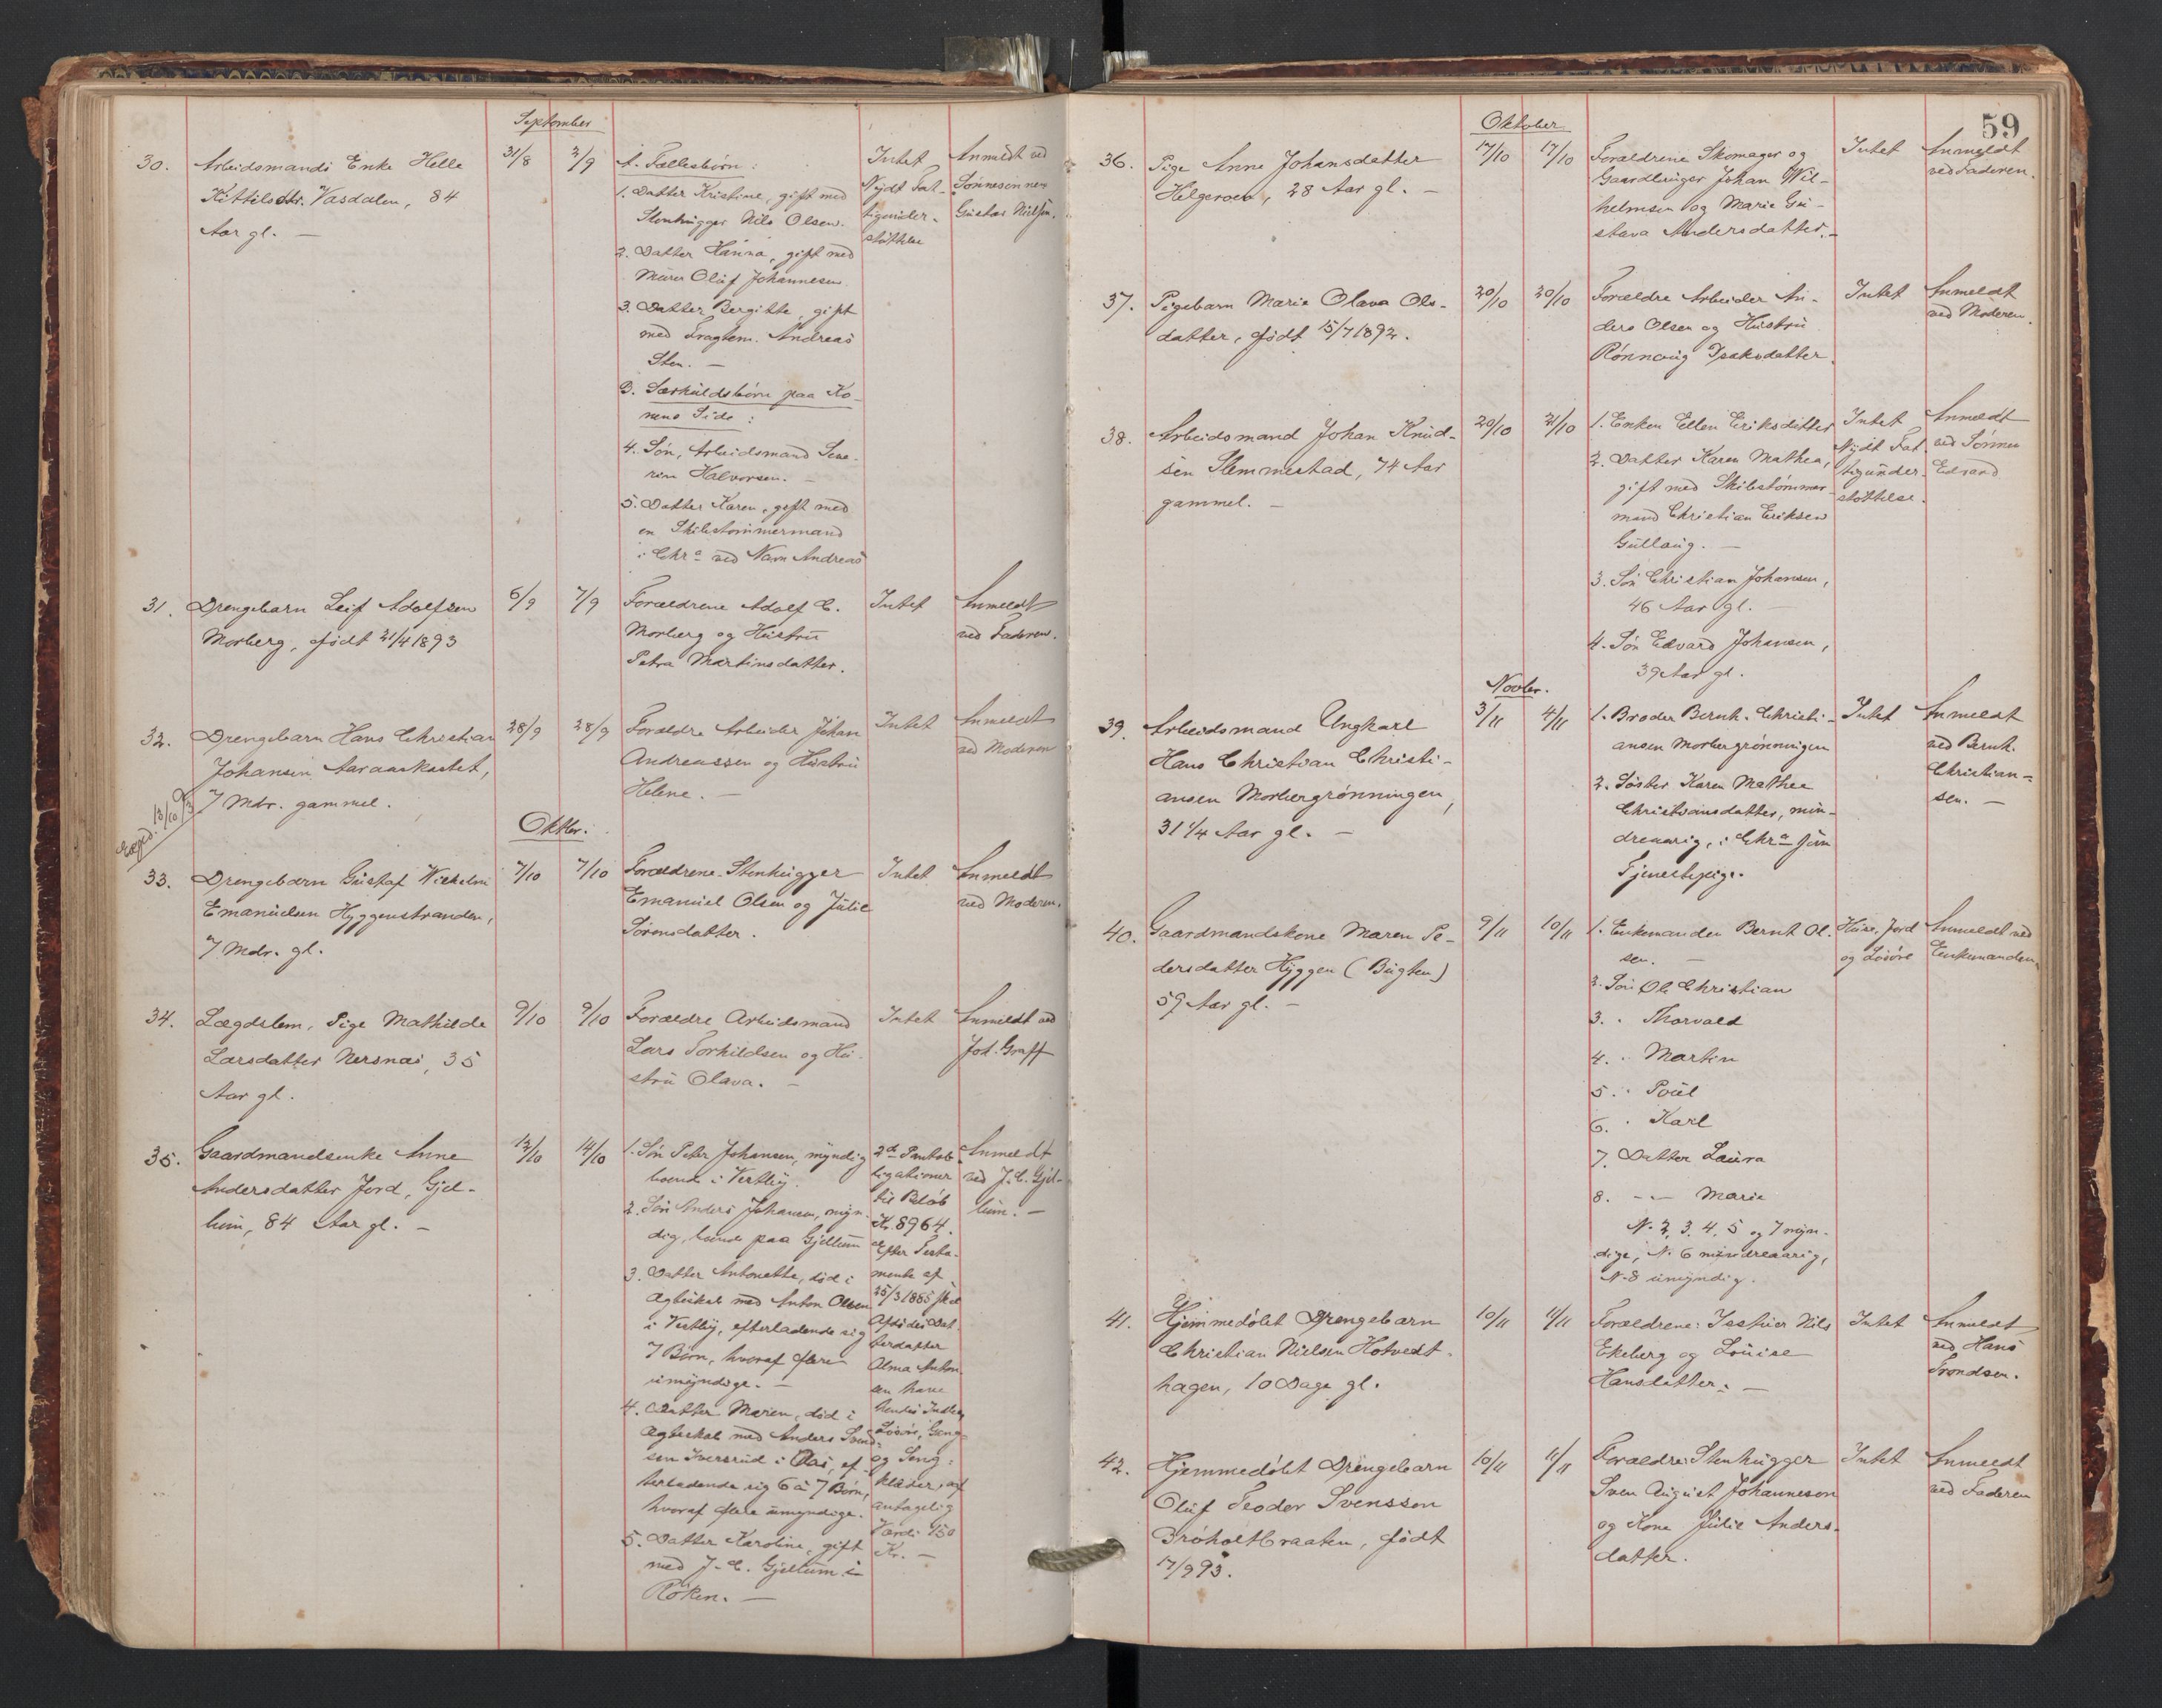 September
30. Arbeidsmands Enke Helle
Kittilsdtr. Vasdalen, 84
Aar gl. —
31/8 2/9
A. Fællesbørn:
1. Datter Kristine, gift med
Stenhugger Nils Olsen.
2. Datter Hanna, gift med
Murer Oluf Johannesen
3. Datter Bergitte, gift
med Fragtem. Andreas
Sten. —
B. Særkuldsbørn paa Ko-
nens Side:
4. Søn, Arbeidsmand Seve-
rin Halvorsen. —
5. Datter Karen, gift med
en Skibstømmermand
i Chra ved Navn Andreas
Intet
Nydt Fat-
tigunder-
støttelse
Anmeldt ved
Sønnesønnen
Gustav Nielsen.
31. Drengebarn Leif Adolfsen
Morberg, født 21/4 1893
6/9 7/9
Forældrene Adolf C.
Morberg og Hustru
Petra Martinsdatter.
Intet
Anmeldt
ved Faderen.
32. Drengebarn Hans Christian
Johansen Aaraaskastet,
7 Mdr. gammel.
28/9 28/9
Forældre Arbeider Johan
Andreassen og Hustru
Helene. —
Intet
Anmeldt
ved Moderen
Exped. 13/10 93
Oktbr.
33. Drengebarn Gustaf Wilhelm
Emanuelsen Hyggenstranden,
7 Mdr. gl.
7/10 7/10
Forældrene Stenhugger
Emanuel Olsen og Julie
Sørensdatter.
Intet
Anmeldt
ved Moderen.
34. Lægdslem, Pige Mathilde
Larsdatter Nersnæs, 35
Aar gl.
9/10 9/10
Forældre Arbeidsmand
Lars Torkildsen og Hu-
stru Olava. —
Intet
Anmeldt ved
Joh. Graff
35. Gaardmandsenke Anne
Andersdatter Jord, Gjel-
lum, 84 Aar gl. —
12/10 14/10
1. Søn Peter Johansen, myndig
boende i Vestby.
2. Søn Anders Johansen, myn-
dig, boende paa Gjellum
3. Datter Antonette, død i
Ægteskab med Anton Olsen
i Vestby, efterladende sig
7 Børn, hvoraf flere
umyndige. —
4. Datter Maren, død i
Ægteskab med Anders
sen Iversrud i Aas, ef-
terladende sig 6 à 7 Børn,
hvoraf flere umyndige.
5. Datter Karoline, gift
med J. C. Gjellum i
Røken. —
2de Pantob-
ligationer
til Beløb
Kr. 8964.
Efter Testa-
mente af
25/3 1885 skal
Afdødes Dat-
terdatter
Alma Anton-
sen have
hendes Indbo,
Løsøre, Gang-
og Seng-
klæder, af
antagelig
Værdi 150
Kr. —
Anmeldt
ved J. C. Gjel-
lum. —
59
Oktober
36. Pige Anne Johansdatter
Helgeroen, 28 Aar gl. —
17/10 17/10
Forældrene Skomager og
Gaardbruger Johan Wil-
helmsen og Marie Gu-
stava Andersdatter. —
Intet
Anmeldt
ved Faderen.
37. Pigebarn Marie Olava Ols-
datter, født 15/7 1892.
20/10 20/10
Forældre Arbeider An-
ders Olsen og Hustru
Rønnaug Isaksdatter.
Intet
Anmeldt
ved Moderen.
38. Arbeidsmand Johan Knud-
sen Slemmestad, 74 Aar
gammel. —
20/10 21/10
1. Enken Ellen Eriksdatter
2. Datter Karen Mathea,
gift med Skibstømmer-
mand Christian Eriksen
Gullaug. —
3. Søn Christian Johansen,
46 Aar gl. —
4. Søn Edvard Johansen,
39 Aar gl.
Intet
Nydt Fat-
tigunder-
støttelse.
Anmeldt
ved Sønnen
Edvard
Novbr.
39. Arbeidsmand Ungkarl
Hans Christian Christi-
ansen Morbergrønningen,
31 1/4 Aar gl. —
3/11 4/11
1. Broder Bernh. Christi-
ansen Morbergrønningen
2. Søster Karen Mathea
Christiansdatter, min-
dreaarig, i Chra som
Tjenestepige.
Intet
Anmeldt
ved Bernh.
Christian-
sen. —
40. Gaardmandskone Maren Pe-
dersdatter Hyggen (Bugten)
59 Aar gl. —
9/11 10/11
1. Enkemanden Bernt Ol-
sen. —
2. Søn Ole Christian
3. " Thorvald
4. " Martin
5. " Poul
6. " Karl
7. Datter Laura
8. -"- Marie
N. 2, 3, 4, 5 og 7 myn-
dige, N. 6 mindreaarig,
N. 8 umyndig.
Huse, Jord
og Løsøre
Anmeldt ved
Enkemanden
41. Hjemmedøbt Drengebarn
Christian Nielsen Hotvedt-
hagen, 10 Dage gl.
10/11 11/11
Forældrene: Nils
Ekeberg og Louise
Hansdatter. —
Intet
Anmeldt
ved Hans
Trondsen.
42. Hjemmedøbt Drengebarn
Oluf Teodor Svensson
Brøholtbraaten, født
17/9 93.
10/11 11/11
Forældre: Stenhugger
Sven August Johanneson
og Kone Julie Anders-
datter.
Intet
Anmeldt
ved Faderen